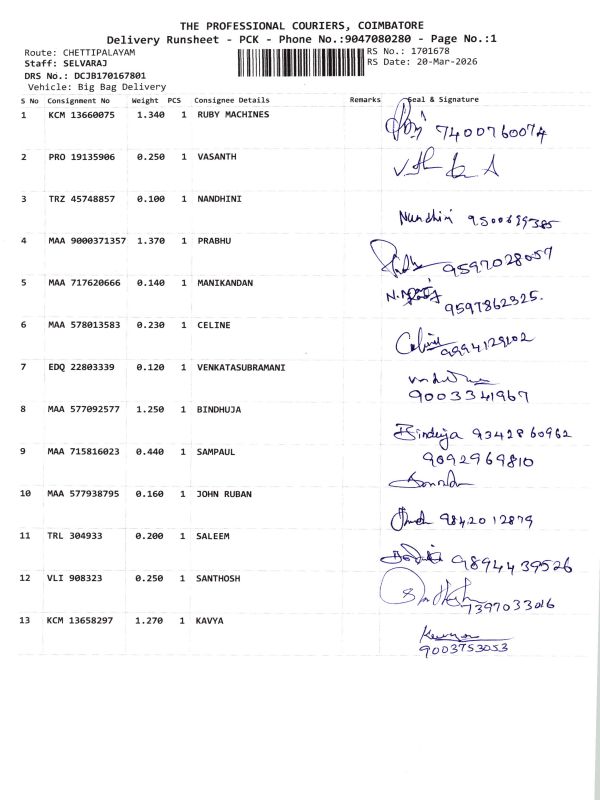 THE PROFESSIONAL COURIERS, COIMBATORE
Delivery Runsheet - PCK - Phone No.:9047080280 - Page No.:1
Route: CHETTIPALAYAM
RS No.: 1701678
Staff: SELVARAJ
RS Date: 20-Mar-2026
DRS No.: DCJB170167801
Vehicle: Big Bag Delivery
S No Consignment No Weight PCS Consignee Details Remarks Seal & Signature
1 KCM 13660075 1.340 1 RUBY MACHINES
7400760074
2 PRO 19135906 0.250 1 VASANTH
3 TRZ 45748857 0.100 1 NANDHINI
Nandhini
4 MAA 9000371357 1.370 1 PRABHU
9597028057
5 MAA 717620666 0.140 1 MANIKANDAN
9597862325.
6 MAA 578013583 0.230 1 CELINE
9994129202
7 EDQ 22803339 0.120 1 VENKATASUBRAMANI
9003341967
8 MAA 577092577 1.250 1 BINDHUJA
Binduja 9342860962
9 MAA 715816023 0.440 1 SAMPAUL
9092969810
10 MAA 577938795 0.160 1 JOHN RUBAN
9842012879
11 TRL 304933 0.200 1 SALEEM
9894439526
12 VLI 908323 0.250 1 SANTHOSH
7397033016
13 KCM 13658297 1.270 1 KAVYA
9003753053